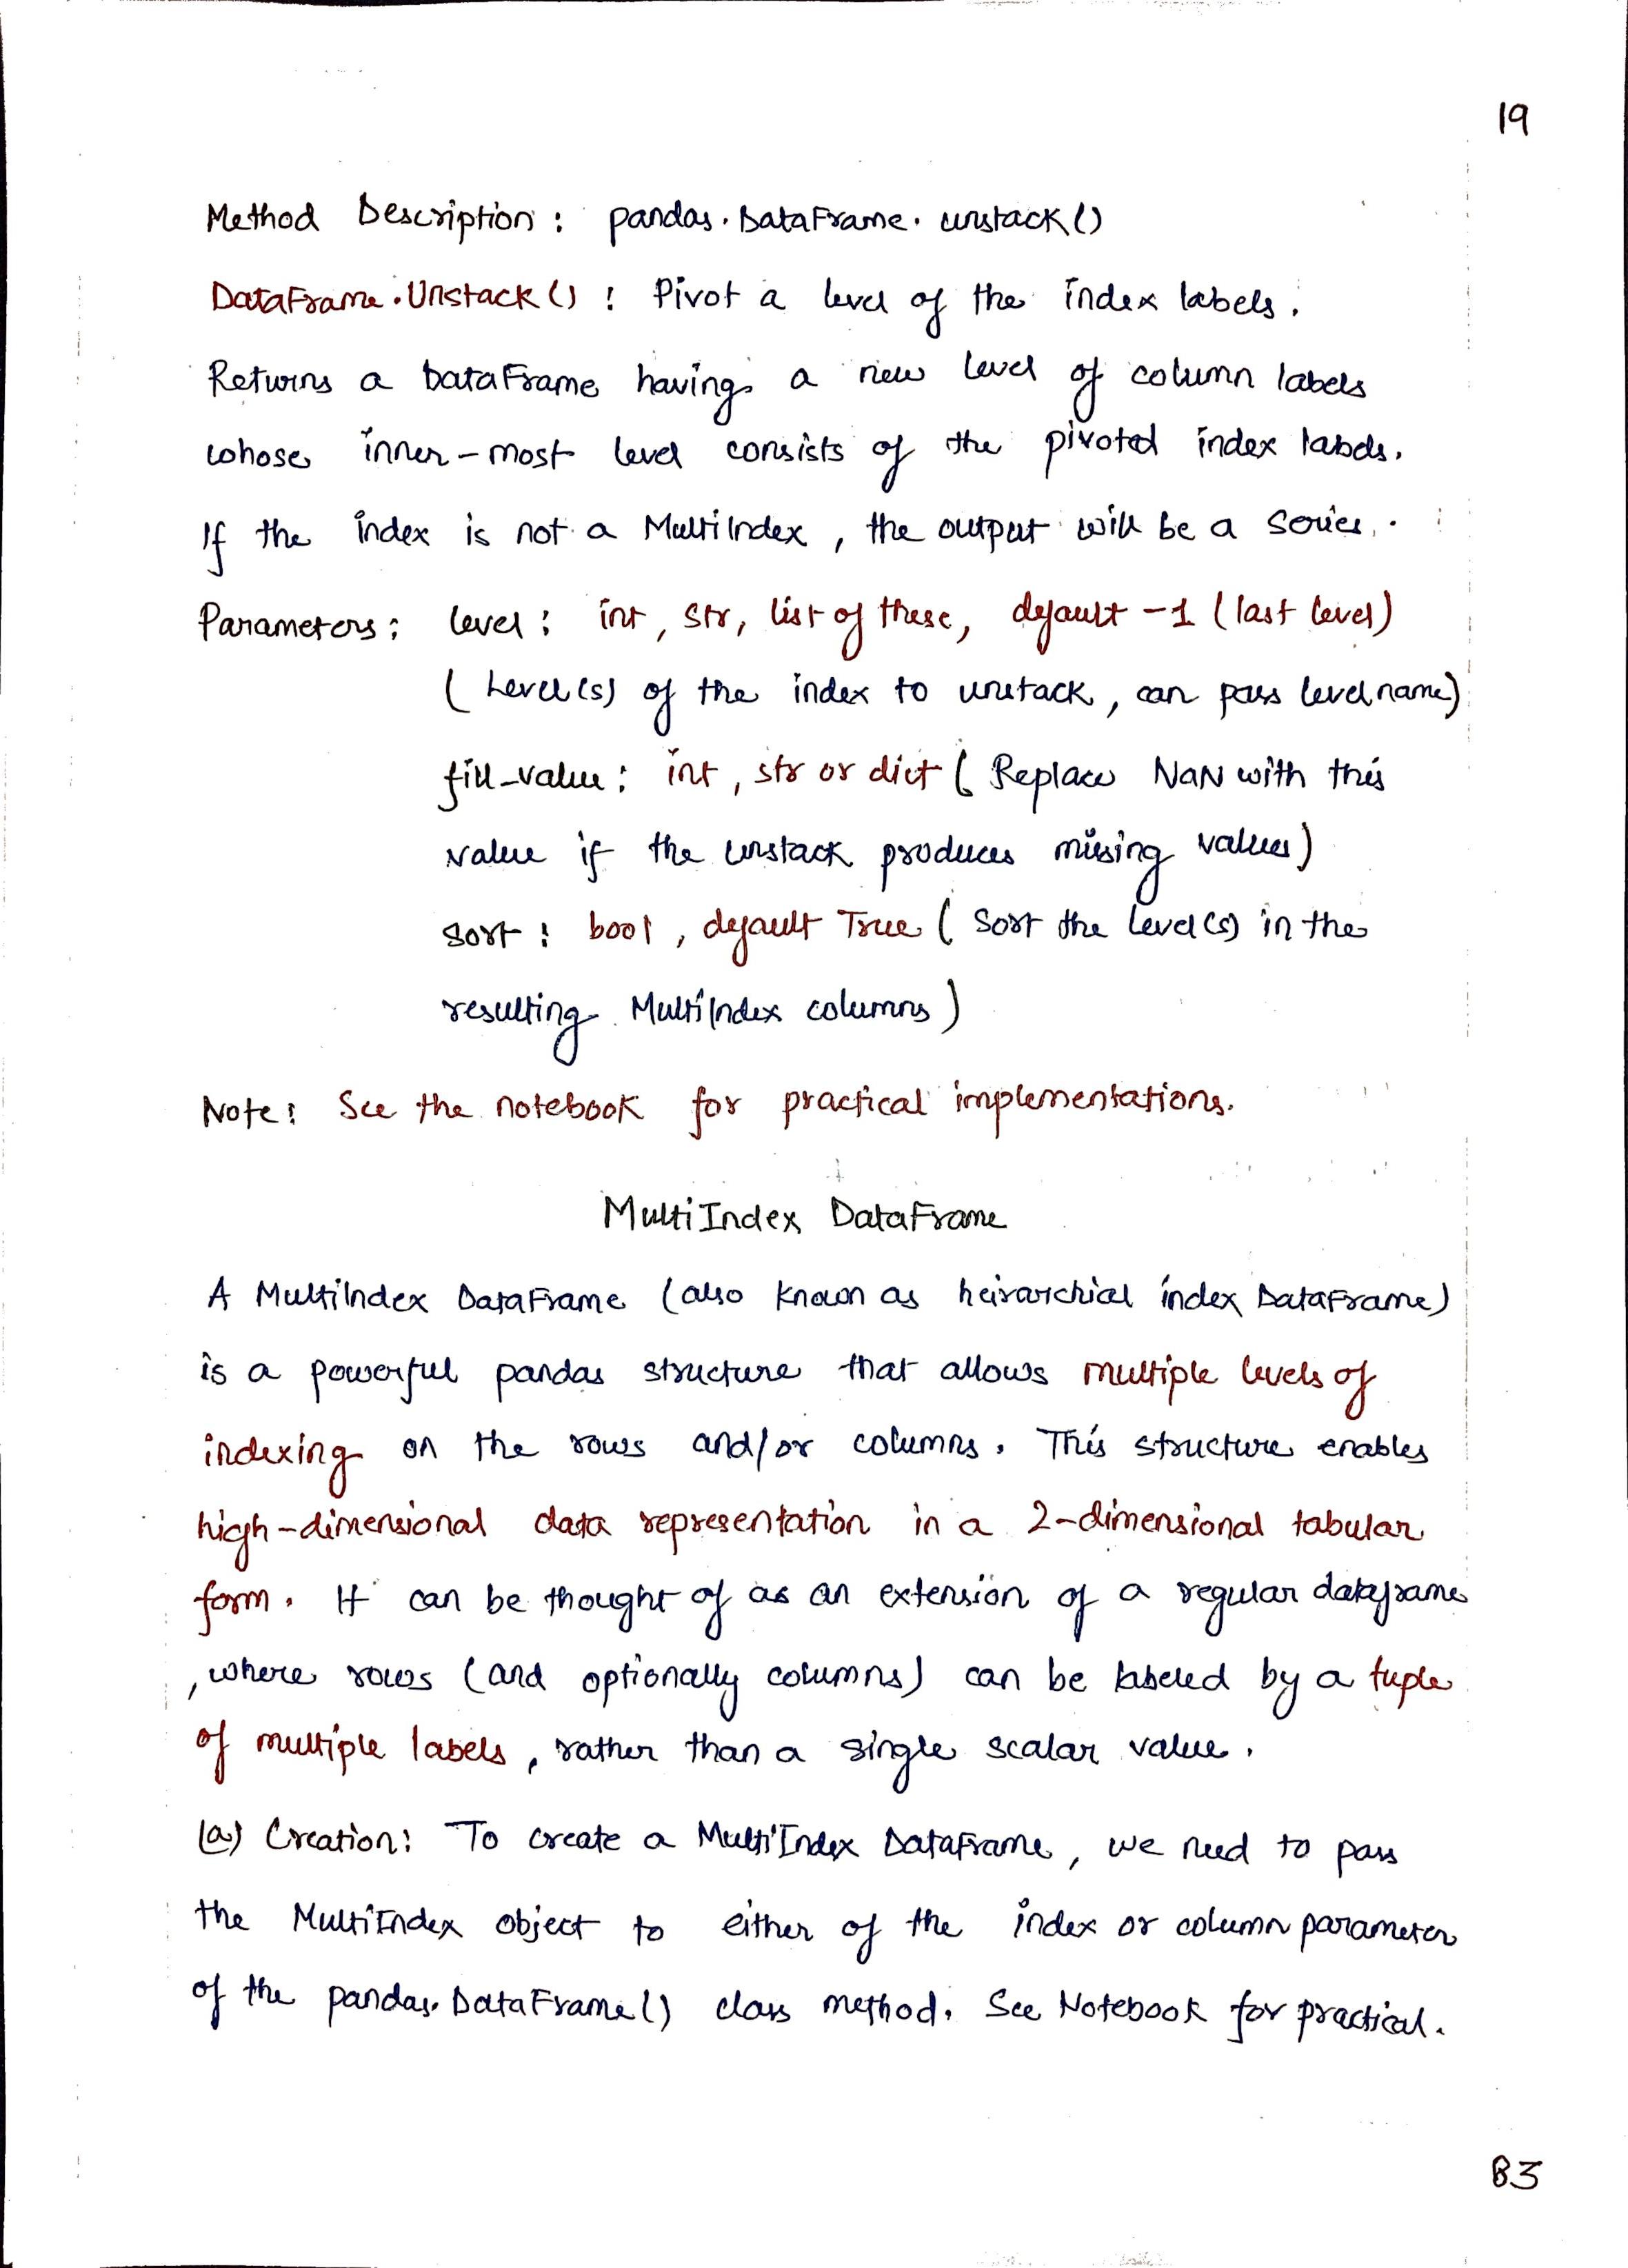 19
Method Description : pandas.DataFrame.unstack()
DataFrame.Unstack() : Pivot a level of the index labels.
Returns a DataFrame having a new level of column labels
whose inner-most level consists of the pivoted index labels.
If the index is not a MultiIndex, the output will be a Series.
Parameters: level: int, str, list of these, default -1 (last level)
(Level(s) of the index to unstack, can pass level name)
fill_value: int, str or dict (Replace NaN with this
value if the unstack produces missing values)
sort: bool, default True (Sort the level(s) in the
resulting MultiIndex columns)
Note: See the notebook for practical implementations.
MultiIndex DataFrame
A MultiIndex DataFrame (also known as heirarchial index DataFrame)
is a powerful pandas structure that allows multiple levels of
indexing on the rows and/or columns. This structure enables
high-dimensional data representation in a 2-dimensional tabular
form. It can be thought of as an extension of a regular dataframe
, where rows (and optionally columns) can be labeled by a tuple
of multiple labels, rather than a single scalar value.
(a) Creation: To create a MultiIndex DataFrame, we need to pass
the MultiIndex object to either of the index or column parameter
of the pandas.DataFrame() class method. See Notebook for practical.
83